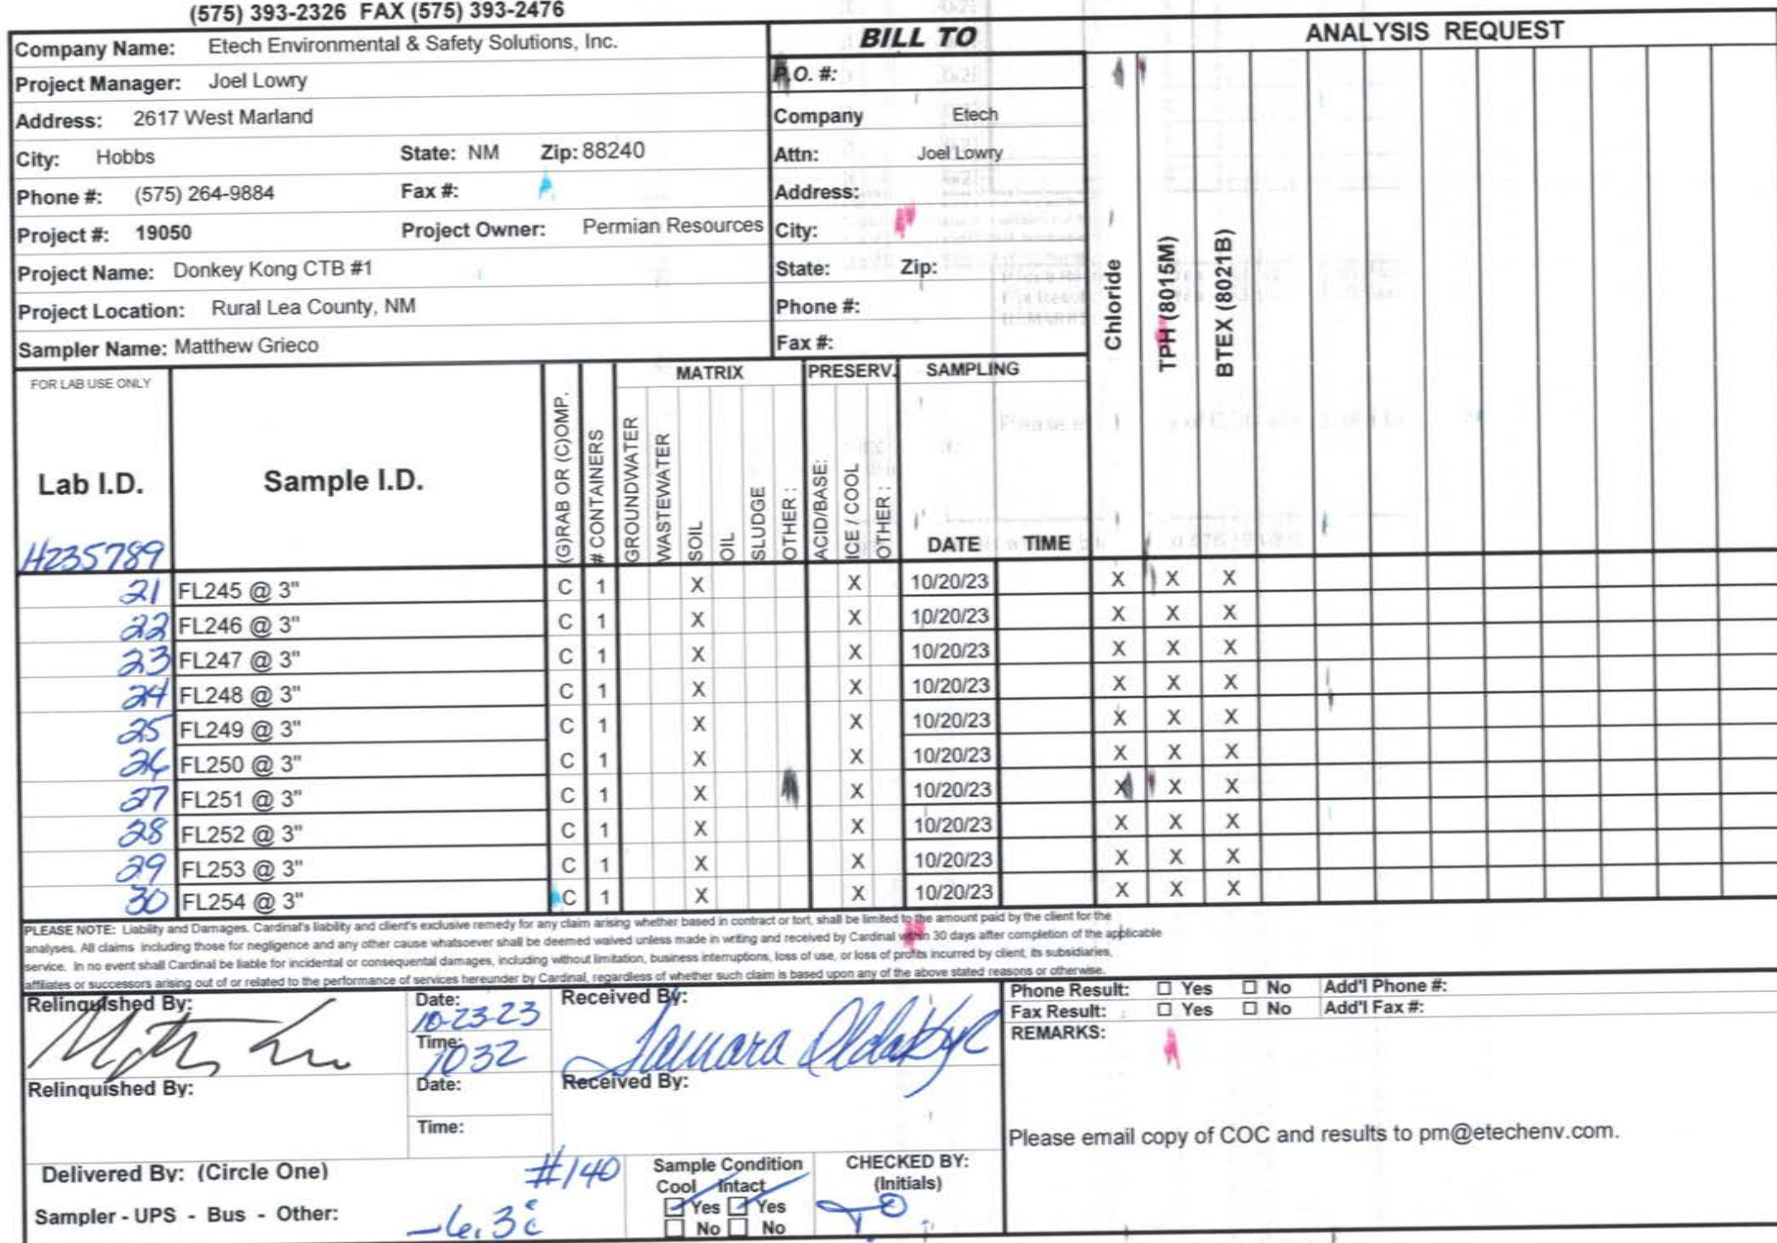 (575) 393-2326 FAX (575) 393-2476
Company Name: Etech Environmental & Safety Solutions, Inc.
BILL TO
ANALYSIS REQUEST
Project Manager: Joel Lowry
P.O. #:
Address: 2617 West Marland
Company Etech
City: Hobbs State: NM Zip: 88240
Attn: Joel Lowry
Phone #: (575) 264-9884 Fax #:
Address:
Project #: 19050 Project Owner: Permian Resources
City:
Project Name: Donkey Kong CTB #1
State: Zip:
Project Location: Rural Lea County, NM
Phone #:
Sampler Name: Matthew Grieco
Fax #:
Chloride
TPH (8015M)
BTEX (8021B)
FOR LAB USE ONLY
MATRIX PRESERV. SAMPLING
Lab I.D.
Sample I.D.
(G)RAB OR (C)OMP.
# CONTAINERS
GROUNDWATER
WASTEWATER
SOIL
OIL
SLUDGE
OTHER :
ACID/BASE:
ICE / COOL
OTHER :
DATE TIME
H235789
21 FL245 @ 3" C 1 X X 10/20/23 X X X
22 FL246 @ 3" C 1 X X 10/20/23 X X X
23 FL247 @ 3" C 1 X X 10/20/23 X X X
24 FL248 @ 3" C 1 X X 10/20/23 X X X
25 FL249 @ 3" C 1 X X 10/20/23 X X X
26 FL250 @ 3" C 1 X X 10/20/23 X X X
27 FL251 @ 3" C 1 X X 10/20/23 X X X
28 FL252 @ 3" C 1 X X 10/20/23 X X X
29 FL253 @ 3" C 1 X X 10/20/23 X X X
30 FL254 @ 3" C 1 X X 10/20/23 X X X
PLEASE NOTE: Liability and Damages. Cardinal's liability and client's exclusive remedy for any claim arising whether based in contract or tort, shall be limited to the amount paid by the client for the
analyses. All claims including those for negligence and any other cause whatsoever shall be deemed waived unless made in writing and received by Cardinal within 30 days after completion of the applicable
service. In no event shall Cardinal be liable for incidental or consequental damages, including without limitation, business interruptions, loss of use, or loss of profits incurred by client, its subsidiaries,
affiliates or successors arising out of or related to the performance of services hereunder by Cardinal, regardless of whether such claim is based upon any of the above stated reasons or otherwise.
Relinquished By:
Date: 10-23-23
Time: 1032
Received By:
Tamara
Phone Result: Yes No Add'l Phone #:
Fax Result: Yes No Add'l Fax #:
REMARKS:
Relinquished By:
Date:
Time:
Received By:
Please email copy of COC and results to pm@etechenv.com.
Delivered By: (Circle One)
#140
Sampler - UPS - Bus - Other:
Sample Condition
Cool Intact
Yes Yes
No No
CHECKED BY:
(Initials)